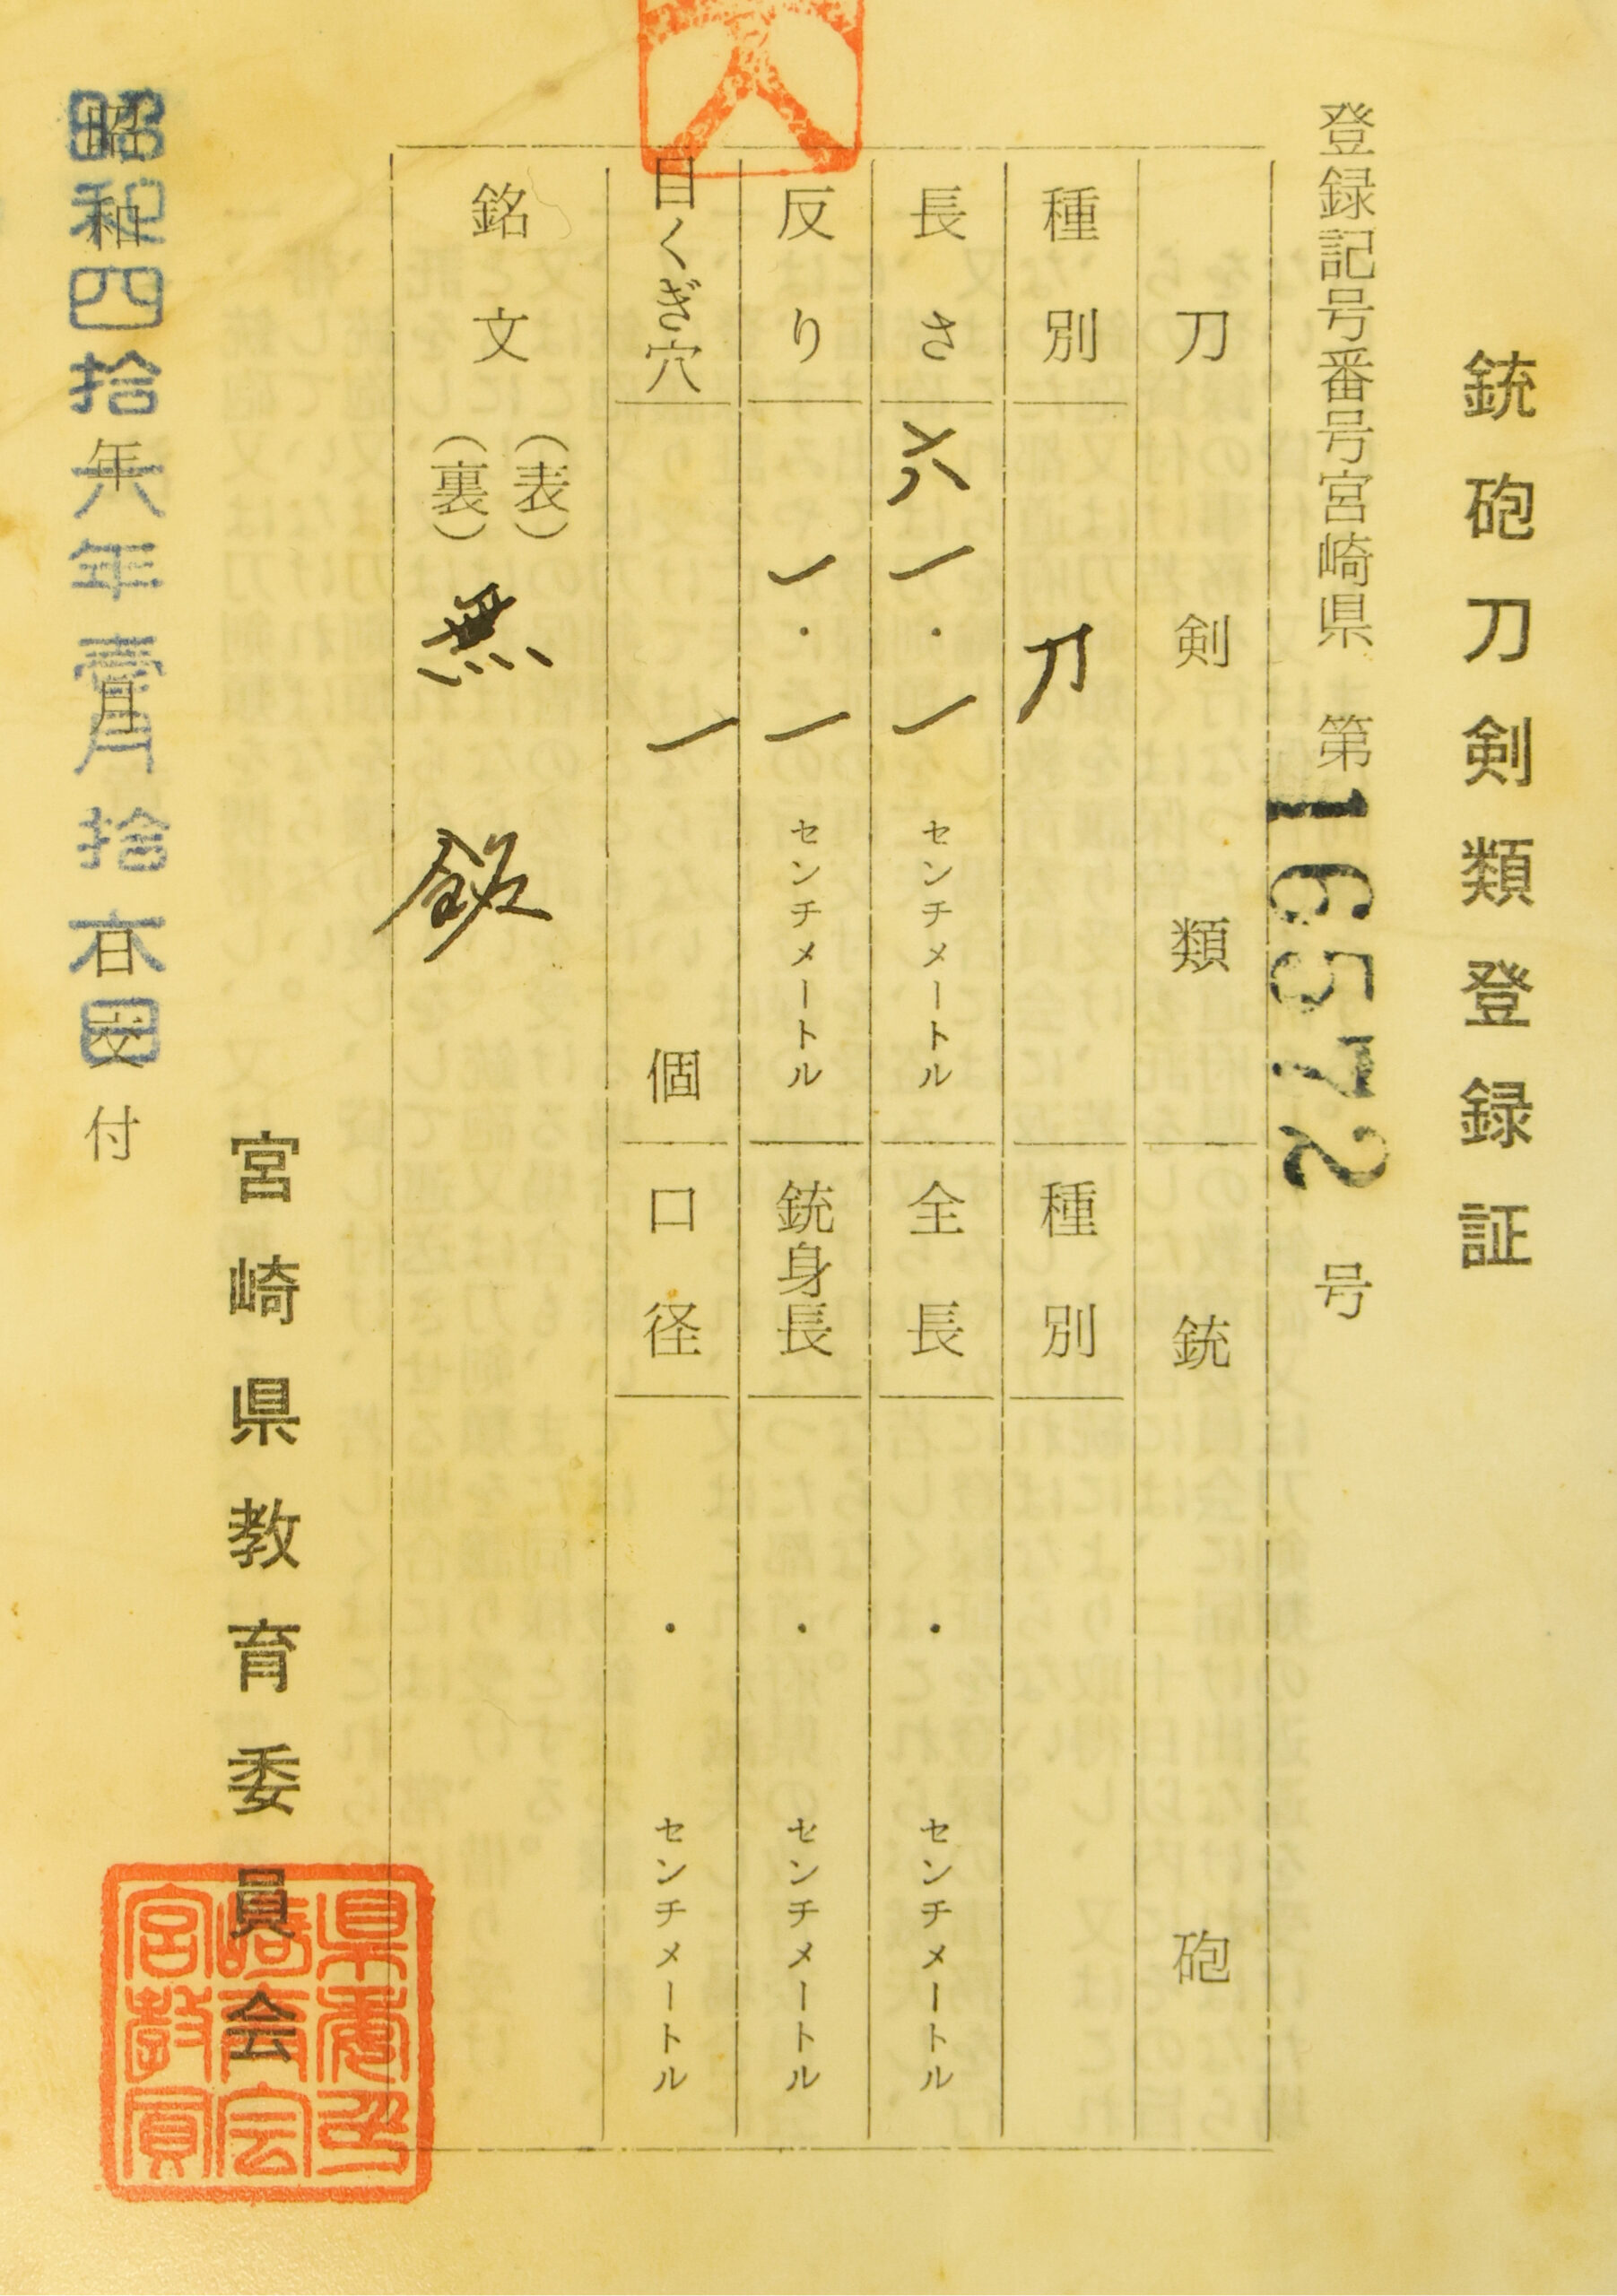 銃砲刀剣類登録証
登録記号番号宮崎県 第16572号
刀剣類 銃砲
種別 刀 種別
長さ 六一・一センチメートル 全長 ・ センチメートル
反り 一・一センチメートル 銃身長 ・ センチメートル
目くぎ穴 一 個 口径 ・ センチメートル
銘文 (表)
(裏) 無 銘
宮崎県教育委員会
昭和四拾六年壹月拾
年 月 日 交付